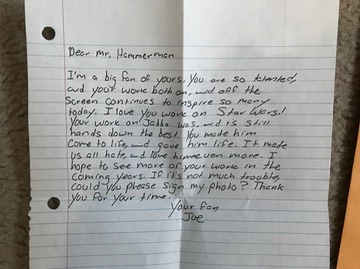 Dear Mr. Hammerman
I'm a big fan of yours. You are so talented,
and your work both on, and off the
screen continues to inspire so many
today. I love you work on Star Wars!
Your work on Jabba was, and is still
hands down the best. You made him
Come to life, and gave him life. It made
us all hate, and love him even more. I
hope to see more of your work in the
coming years. If it's not much trouble,
could you please sign my photo? Thank
you for your time.
Your fan
Joe